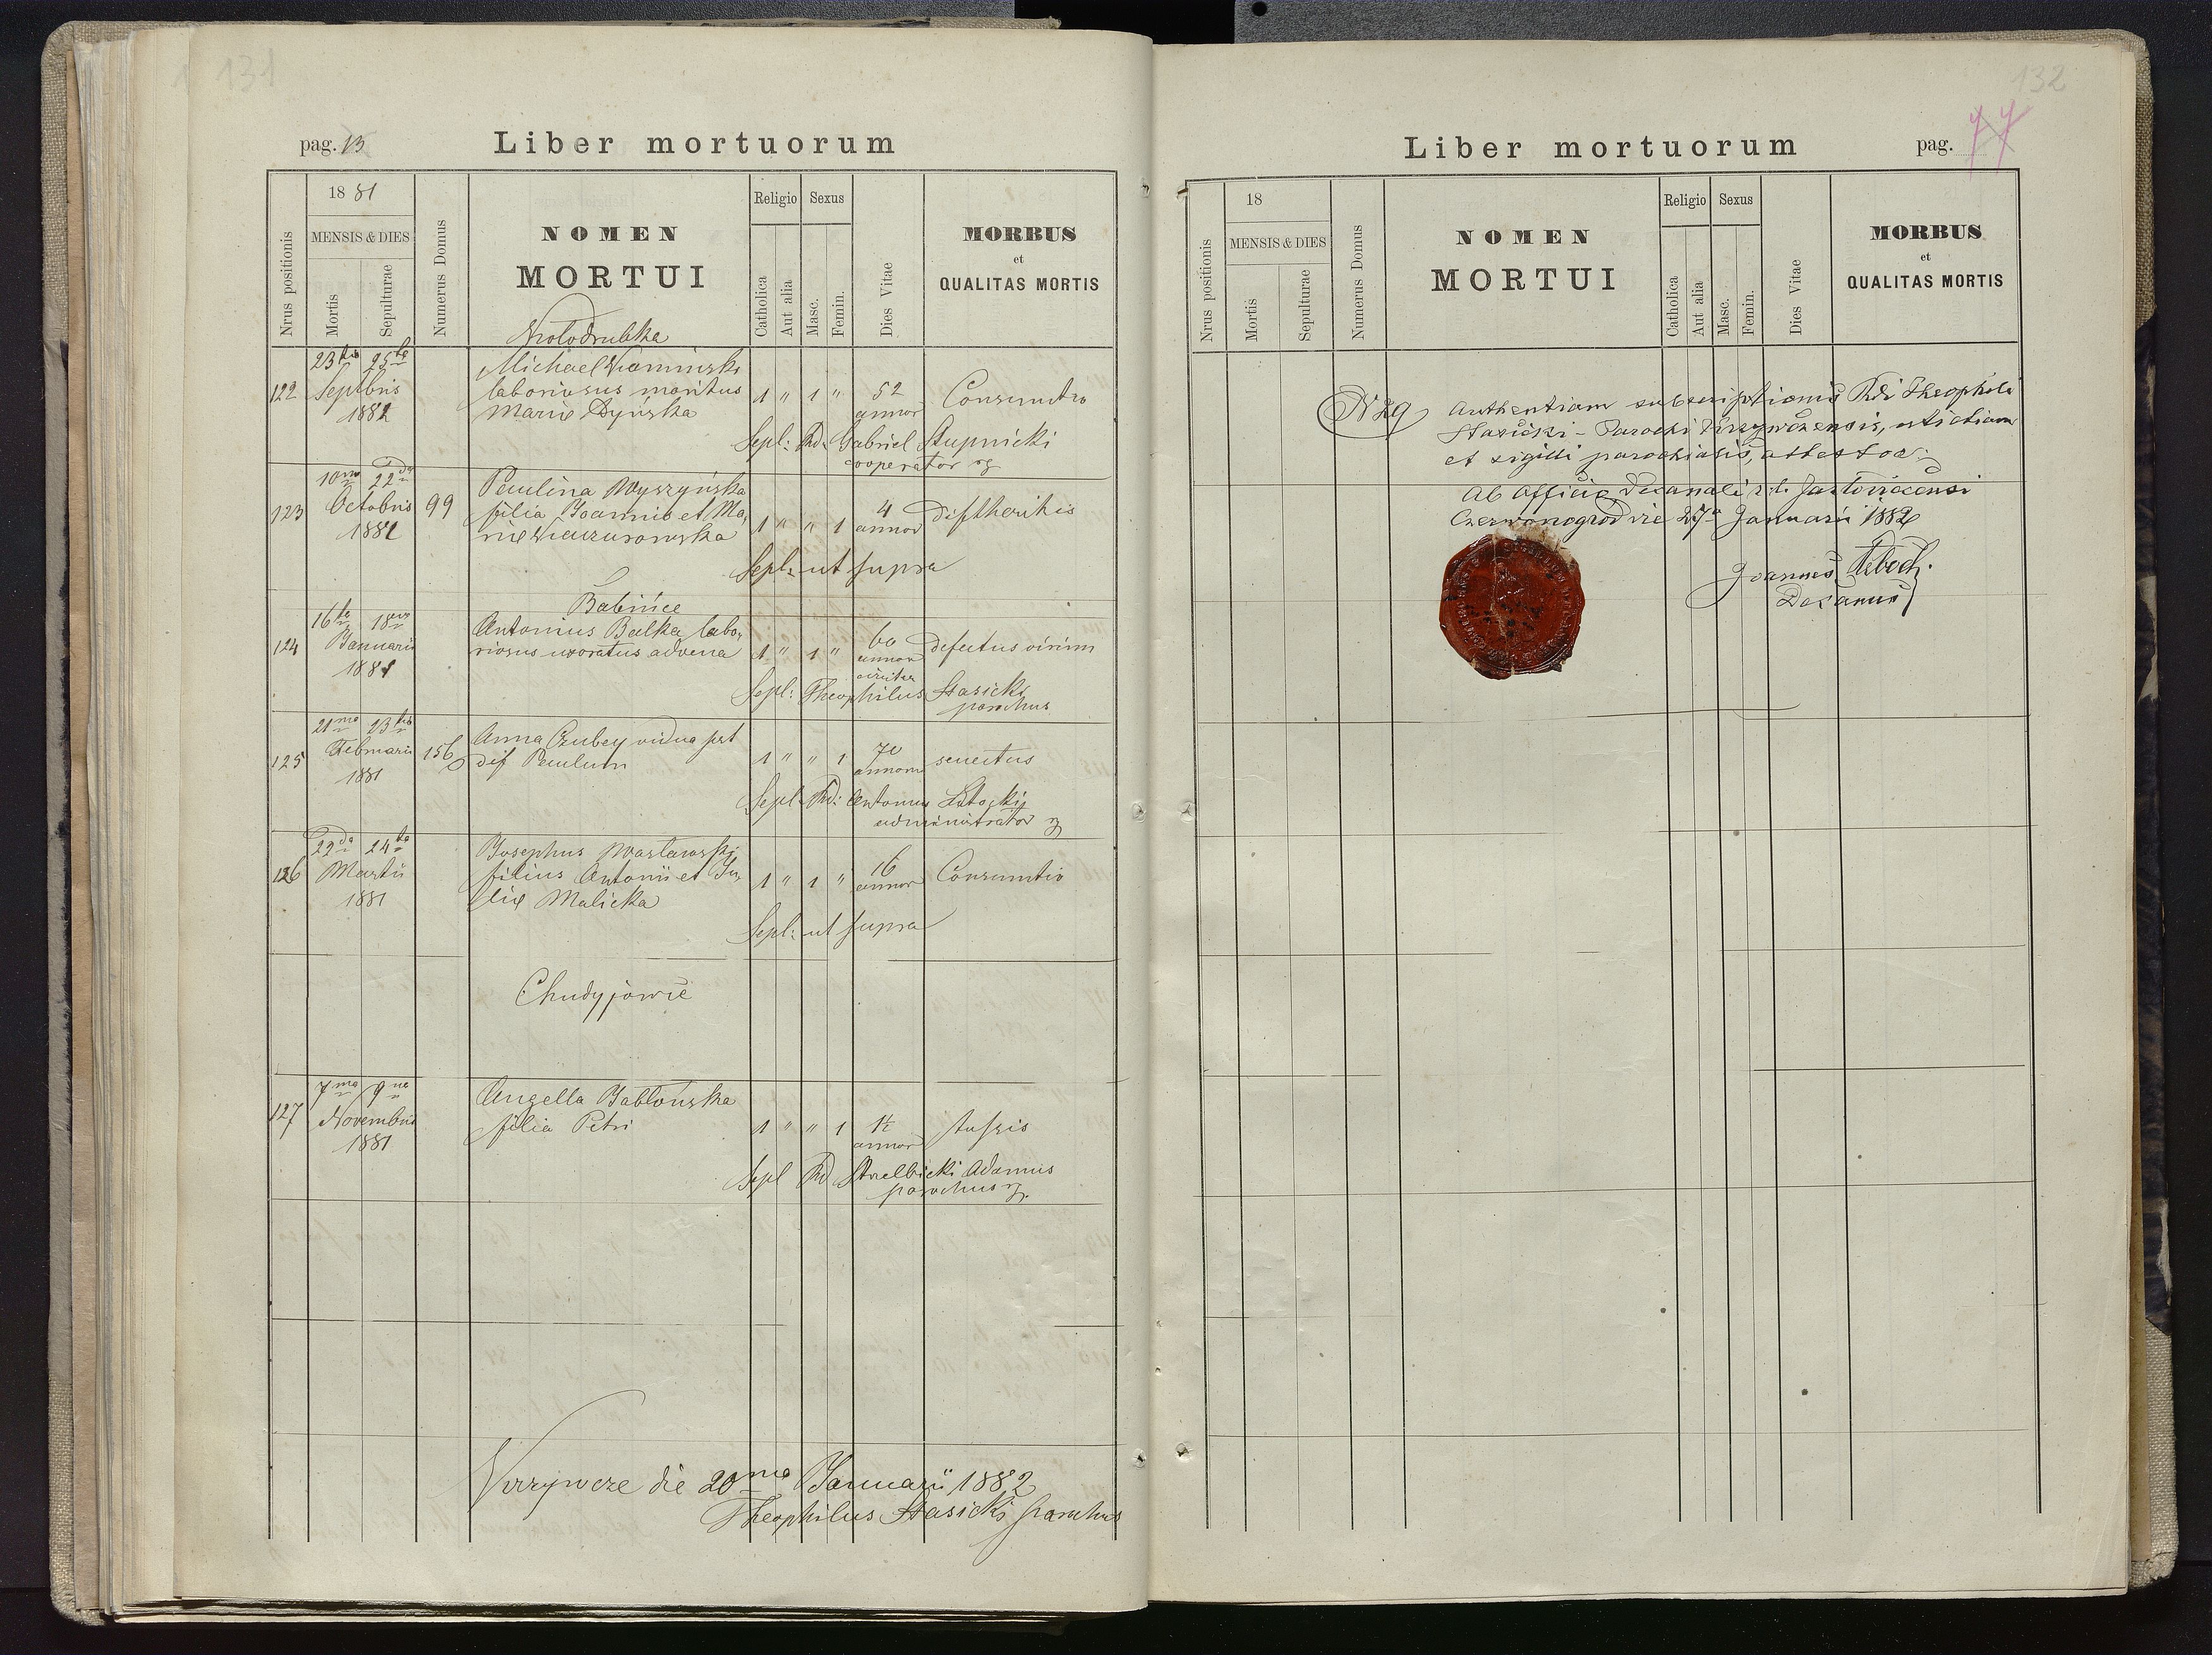 131
pag. 13
Liber mortuorum
Nrus positionis
1881
MENSIS & DIES
Mortis
Sepulturae
Numerus Domus
NOMEN
MORTUI
Religio
Catholica
Aut alia
Sexus
Masc.
Femin.
Dies Vitae
MORBUS
et
QUALITAS MORTIS
Wolodrubka
122
23tia 25ta
Septbris
1881
Michael Kaminski
laboriosus maritus
Mariæ Dyńska
1 " 1 "
52
annor
Consumtio
Sepl: Rd. Gabriel Stupnicki
cooperator rg
123
10ma 22da
Octobris
1881
99
Paulina Wyszyńska
filia Joannis et Ma,
riæ
1 " " 1
4
annor
diftheritis
Sepl: ut supra
Babince
124
16ta 18va
Januarii
1881
Antonius Balka labo,
riosus uxoratus advena
1 " 1 "
60
annor
circiter
defectus virium
Sepl: Theophilus Stasicki
parochus
125
21ma 23tia
Februarii
1881
156
Anna Czubey vidua pst
def Paulum
1 " " 1
70
annorum
senectus
Sepl. Rd: Antonius Lutocki
administrator rg
126
22da 24ta
Martii
1881
Josephus Maslawski
filius Antonii et Ju,
liæ Malicka
1 " 1 "
16
annor
Consumtio
Sepl: ut supra
Chudyjowce
127
7ma 9na
Novembris
1881
Angella Jabłońska
filia Petri
1 " " 1
1½
annor
tussis
Sepl Rd Strelbicki Adamus
parochus rg.
Krzywcze die 20ma Januarii 1882
Theophilus Stasicki parochus
132
77
Liber mortuorum
pag.
Nrus positionis
18
MENSIS & DIES
Mortis
Sepulturae
Numerus Domus
NOMEN
MORTUI
Religio
Catholica
Aut alia
Sexus
Masc.
Femin.
Dies Vitae
MORBUS
et
QUALITAS MORTIS
N 29
Authentiam subscriptionis Rdi Theophili
Stasicki - Parochi Krzywczensis, uti etiam
et sigilli parochialis, attestor.
Ab Officio Decanali r. l. Jazlovicensi
Czerwonogrod die 27a Januarii 1882
Joannes
Decanus